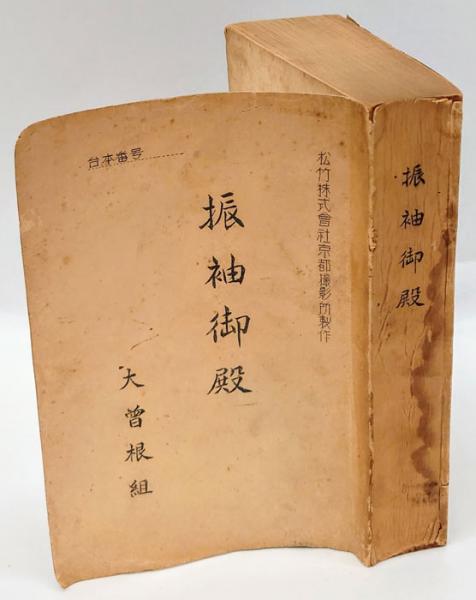 松竹株式會社京都撮影所製作
振袖御殿
大曽根組
台本番号
振袖御殿